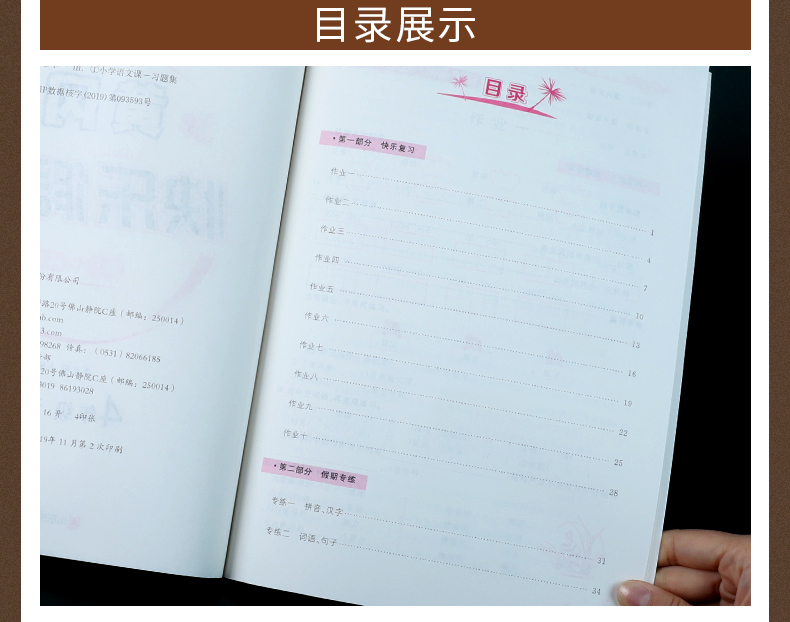 目录展示
①小学语文课－习题集
IP数据核字(2019)第093593号
份有限公司
路20号佛山静院C座（邮编：250014）
.com
3.com
98268 传真：（0531）82066185
20号佛山静院C座（邮编：250014）
019 86193028
16开 4印张
19年11月第2次印刷
目录
·第一部分 快乐复习
作业一 1
作业二 4
作业三 7
作业四 10
作业五 13
作业六 16
作业七 19
作业八 22
作业九 25
作业十 28
·第二部分 假期专练
专练一 拼音、汉字 31
专练二 词语、句子 34